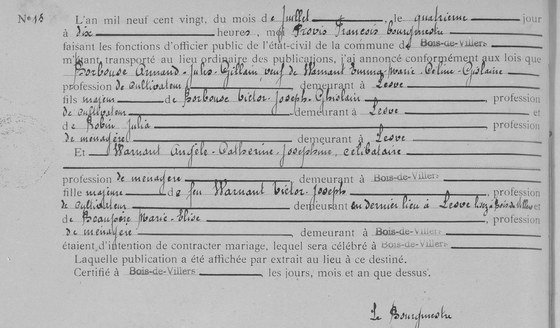 No 18 L'an mil neuf cent vingt, du mois de Juillet le quatrième jour
à dix heures, moi Provis François bourgmestre
faisant les fonctions d'officier public de l'état-civil de la commune de Bois-de-Villers
m'étant transporté au lieu ordinaire des publications, j'ai annoncé conformément aux lois que
Borbouse Armand-Jules-Gillain, veuf de Warnant Emma-Marie-Céline-Ghislaine
profession de cultivateur demeurant à Lesve
fils majeur de Borbouse Victor-Joseph-Ghislain, profession
de cultivateur demeurant à Lesve et
de Robin Julia, profession
de ménagère demeurant à Lesve
Et Warnant Angèle-Catherine-Josephine, célibataire
profession de ménagère demeurant à Bois-de-Villers
fille majeure de feu Warnant Victor-Joseph, profession
de cultivateur demeurant en dernier lieu à Lesve lisez Bois de Villers et
de Beaufoir Marie-Elise, profession
de ménagère demeurant à Bois-de-Villers
étaient d'intention de contracter mariage, lequel sera célébré à Bois-de-Villers
Laquelle publication a été affichée par extrait au lieu à ce destiné.
Certifié à Bois-de-Villers les jours, mois et an que dessus.
Le Bourgmestre